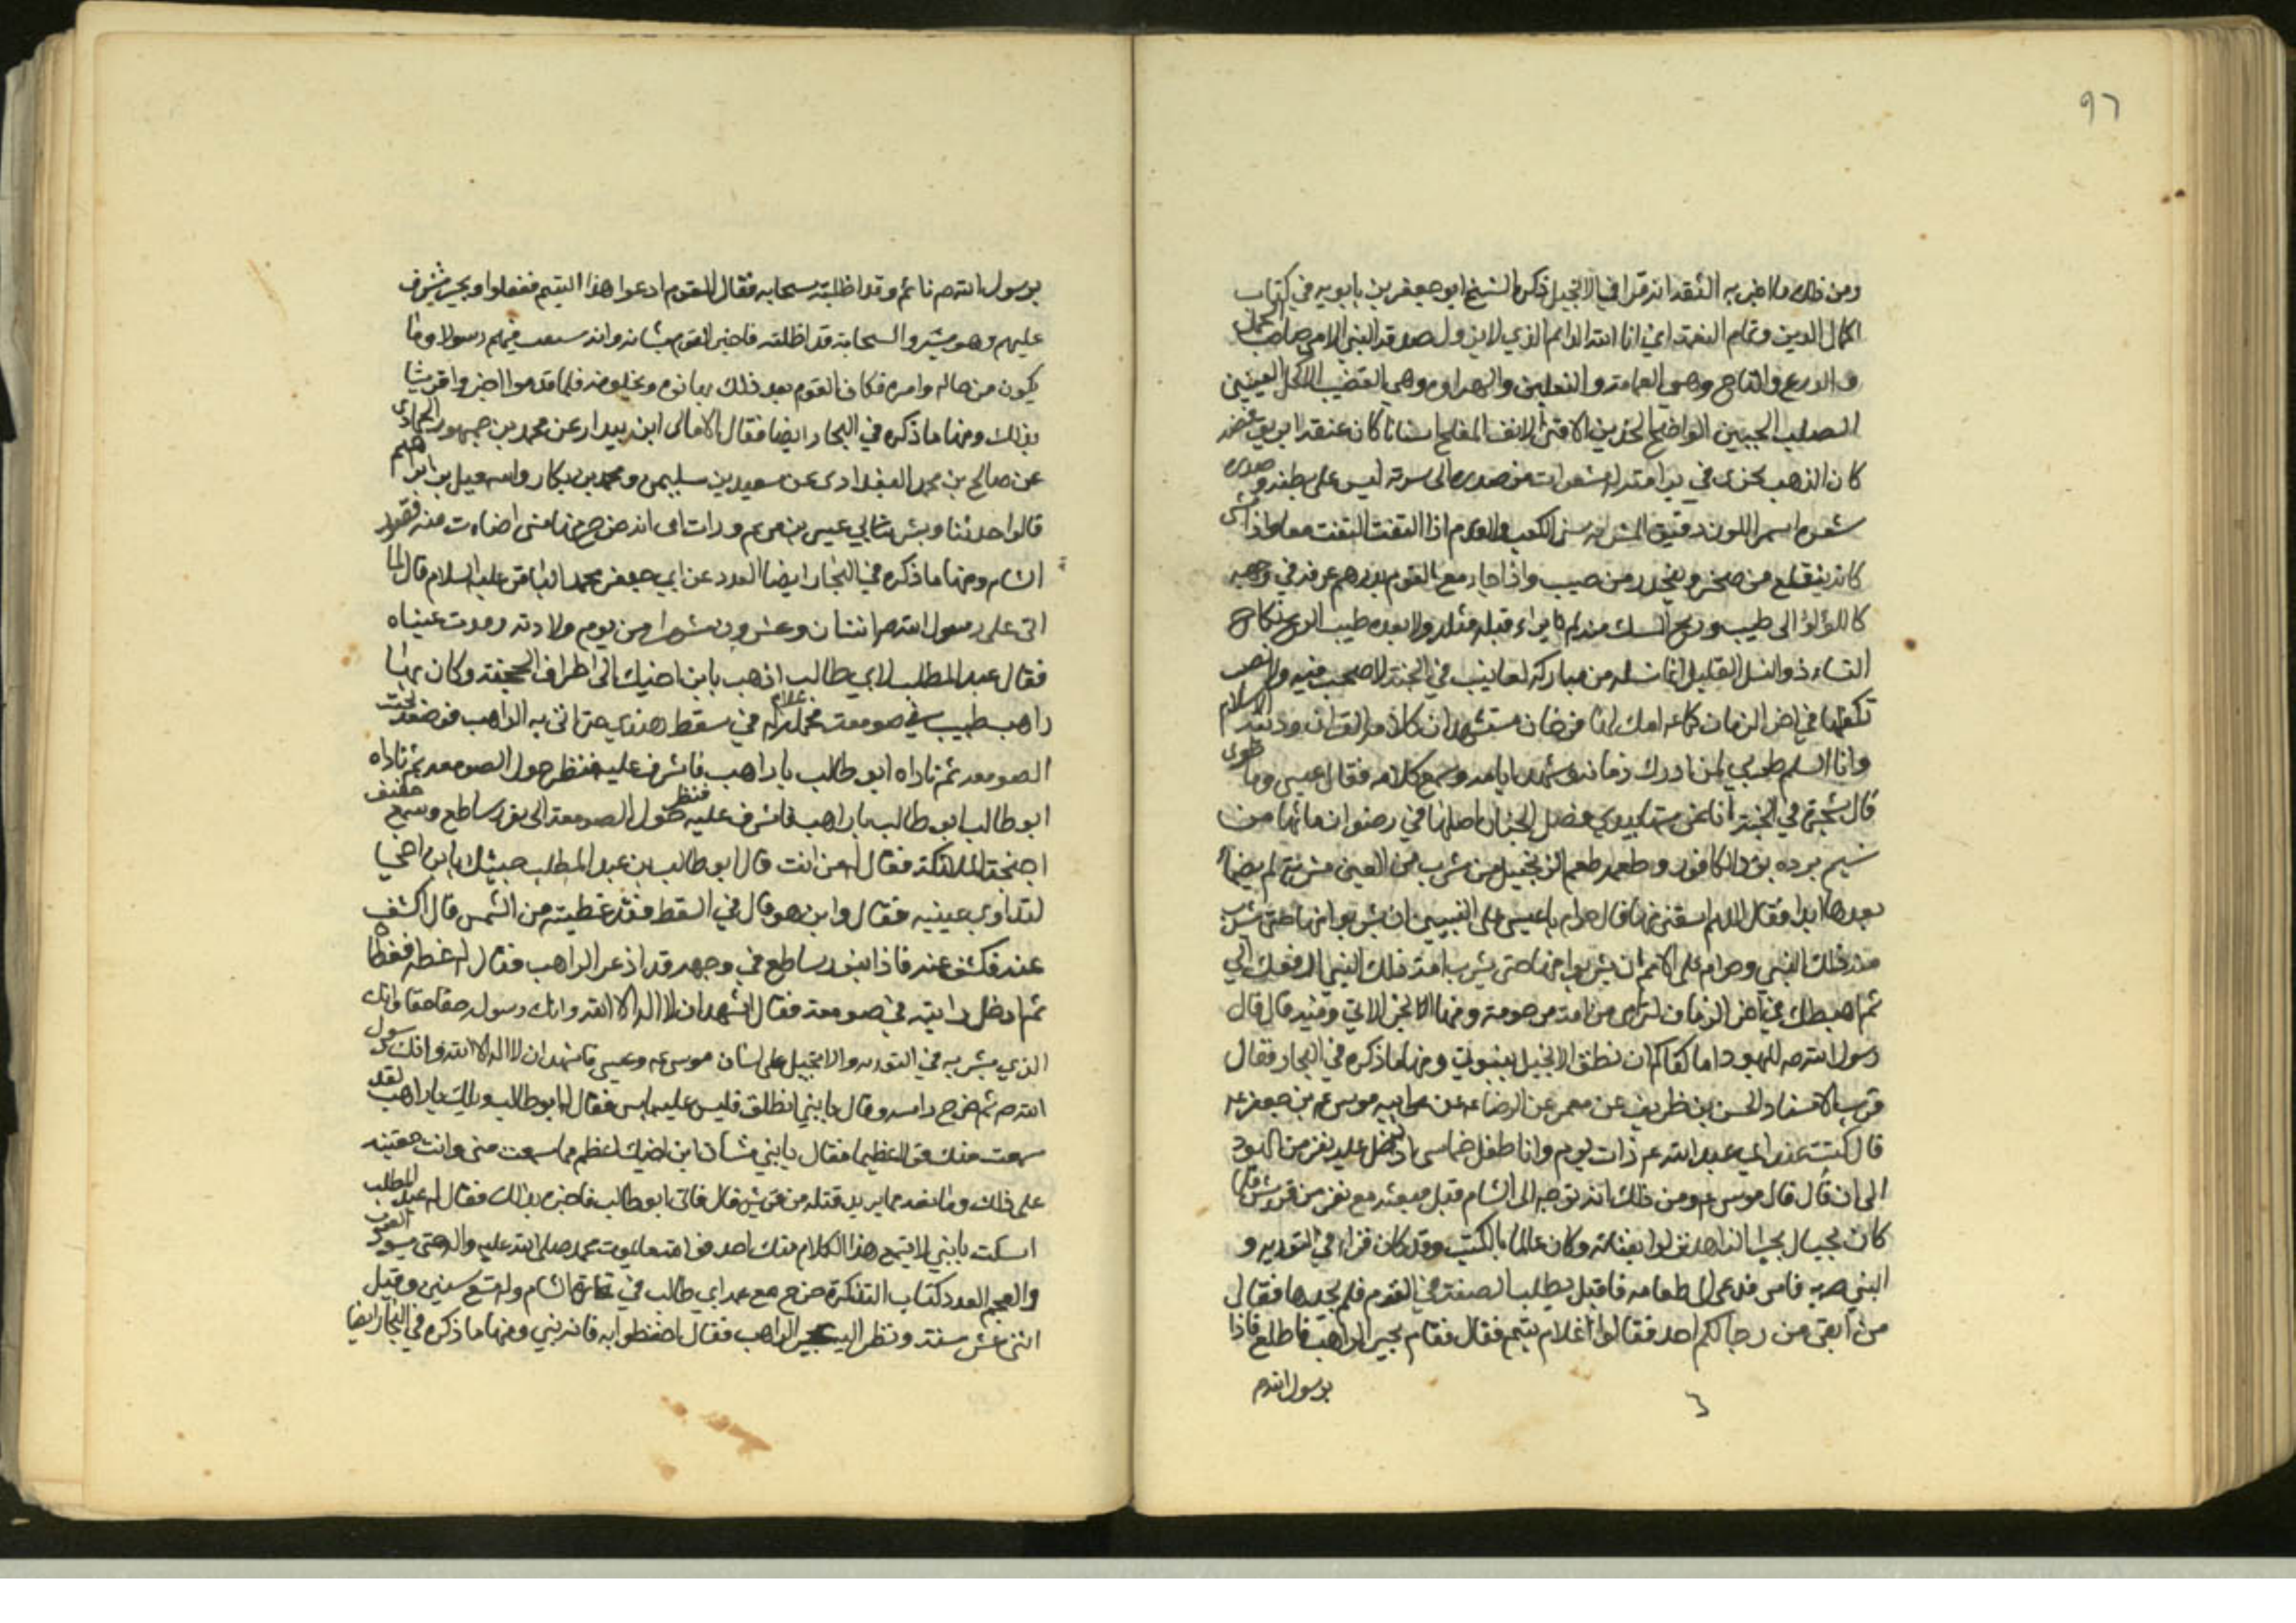 ٩٦
ومن ذلك ما اخبر به الثقة انه قرا في الانجيل ذكره الشيخ ابو جعفر بن بابويه في كتاب
اكمال الدين وتمام النعمة اني انا الله الدايم الذي لا يزول صدقوا النبي الامي صاحب الجمل
والدرع والتاج وهي العمامة والنعلين والهراوه وهي القضيب الاكحل العينين
الصلب الجبين الواضح الخدين الاقنى الانف المفلج اسنانا كان عنقه ابريق فضه
كان الذهب يجري في تراقيه له شعرات من صدره الى سرته ليس على بطنه وصدره
شعره اسمر اللون دقيق المسربه شثن الكف والقدم اذا التفت التفت معا واذا مشى
كانه ينقلع من صخر وينحدر من صبب واذا جاء مع القوم بدرهم عرقه في وجهه
كاللؤلؤ الى طيب وريح المسك منه لم يراء قبله مثله ولا بعده طيب الريح نكاح
النساء ذو النسل القليل انما نسله من مباركه لها بيت في الجنة لا صخب فيه ولا نصب
تكفلها في اخر الزمان كما امك لها فرخان مستشهدان كلامه القران ودينه الاسلام
وانا السلم طوبى لمن ادرك زمانه وشهد ايامه وسمع كلامه فقال عيسى وما طوبى
قال شجرة في الجنة انا غرستها بيدي فضل الجنان اصلها في رضوان مائها من
تسنيم برده برد الكافور وطعمه طعم الزنجبيل من شرب من العين شربة لم يضما
بعدها ابدا فقال اللهم اسقني منها قال حرام يا عيسى على النبيين ان يشربوا منها حتى يشرب
منه ذلك النبي وحرام على الامم ان يشربوا منها حتى يشرب امة ذلك النبي ارفعك الي
ثم اهبطك في اخر الزمان لترى من امة مرحومة ومنها الخبر الاتي وفيه قال قال
رسول الله صه لليهود اما كفاكم ان نطق الانجيل بنبوتي ومنها ما ذكره في البحار فقال
قرب الاسناد الحسن بن ظريف عن معمر عن الرضا عه عن ابيه موسى عه بن جعفر عه
قال كنت عند ابي عبد الله عم ذات يوم وانا طفل خماسي اذ دخل عليه نفر من اليهود
الى ان قال قال موسى عه ومن ذلك انه توجه الى الشام قبل مبعثه مع نفر من قريش فلما
كان بحيال بحيرا الراهب نزلوا بفنائه وكان عالما بالكتب وقد كان قراء في التوريه و
النبي صه فامر فدعى الى طعامه فاقبل يطلب الصفة في القوم فلم يجدها فقال
من ابقي من رحالكم احد فقالوا غلام يتيم فقال فقام بحير الراهب فاطلع فاذا
برسول الله صم
برسول الله صم نائم وقد اظلته سحابه فقال للقوم ادعوا هذا اليتيم ففعلوا وبحير مشرف
عليهم وهو يسير والسحابة قد اظلته فاخبر القوم بشانه وانه سيبعث فيهم رسولا وما
يكون من حاله وامره فكان القوم بعد ذلك يهابونه ويجلونه فلما قدموا اخبروا قريشا
بذلك ومنها ما ذكره في البحار ايضا فقال الامالى ابن بندار عن محمد بن جمهور الحمادى
عن صالح بن محمد البغدادى عن سعيد بن سليمن ومحمد بن بكار واسمعيل بن ابراهيم
قالوا حدثنا وبشر بابي عيسى بن مريم ورات امى انه خرج منها شى اضاءت منه قصور
الشام ومنها ما ذكره في البحار ايضا العدد عن ابي جعفر محمد الباقر عليه السلام قال لما
اتى على رسول الله صه اثنان وعشرون شهرا من يوم ولادته رمدت عيناه
فقال عبد المطلب لابي طالب اذهب بابن اخيك الى اطراف الجحفة وكان بها
راهب طبيب في صومعة فحمله غلام له في سفط هندي حتى اتى به الراهب فوضعه تحت
الصومعه ثم ناداه ابو طالب يا راهب فاشرف عليه فنظر حول الصومعه ثم ناداه
ابو طالب يا راهب فاشرف عليه فنظر حول الصومعة الى نور ساطع وسمع حفيف
اجنحة الملائكة فقال له من انت قال ابو طالب بن عبد المطلب جئتك بابن اخي
لتداوي عينيه فقال واين هو قال في السفط قد غطيته من الشمس قال اكشف
عنه فكشف عنه فاذا بنور ساطع في وجهه قد اذعر الراهب فقال له غطه فغطاه
ثم ادخل رأسه في صومعة فقال اشهد ان لا اله الا الله وانك رسوله حقا حقا وانك
الذي بشر به في التوريه والانجيل على لسان موسى عه وعيسى فاشهد ان لا اله الا الله وانك رسول
الله صم ثم اخرج راسه وقال يا بني انطلق فليس عليه باس فقال له ابو طالب ويلك يا راهب لقد
سمعت منك قولا عظيما فقال يا بني شأن ابن اخيك اعظم مما سمعت مني وانت معينه
على ذلك ومانعه مما يريد قتله من قريش قال فاتى ابو طالب فاخبره بذلك فقال له عبد المطلب
اسكت يا بني لا يسمع هذا الكلام منك احد فوالله ما يموت محمد صلى الله عليه واله حتى يسود العرب
والعجم العدد كتاب التذكرة خرج مع عمه ابي طالب في تجارة الشام وله تسع سنين وقيل
اثنى عشر سنة ونظر اليه بحير الراهب فقال احفظوا به فانه نبي ومنها ما ذكره في البحار ايضا